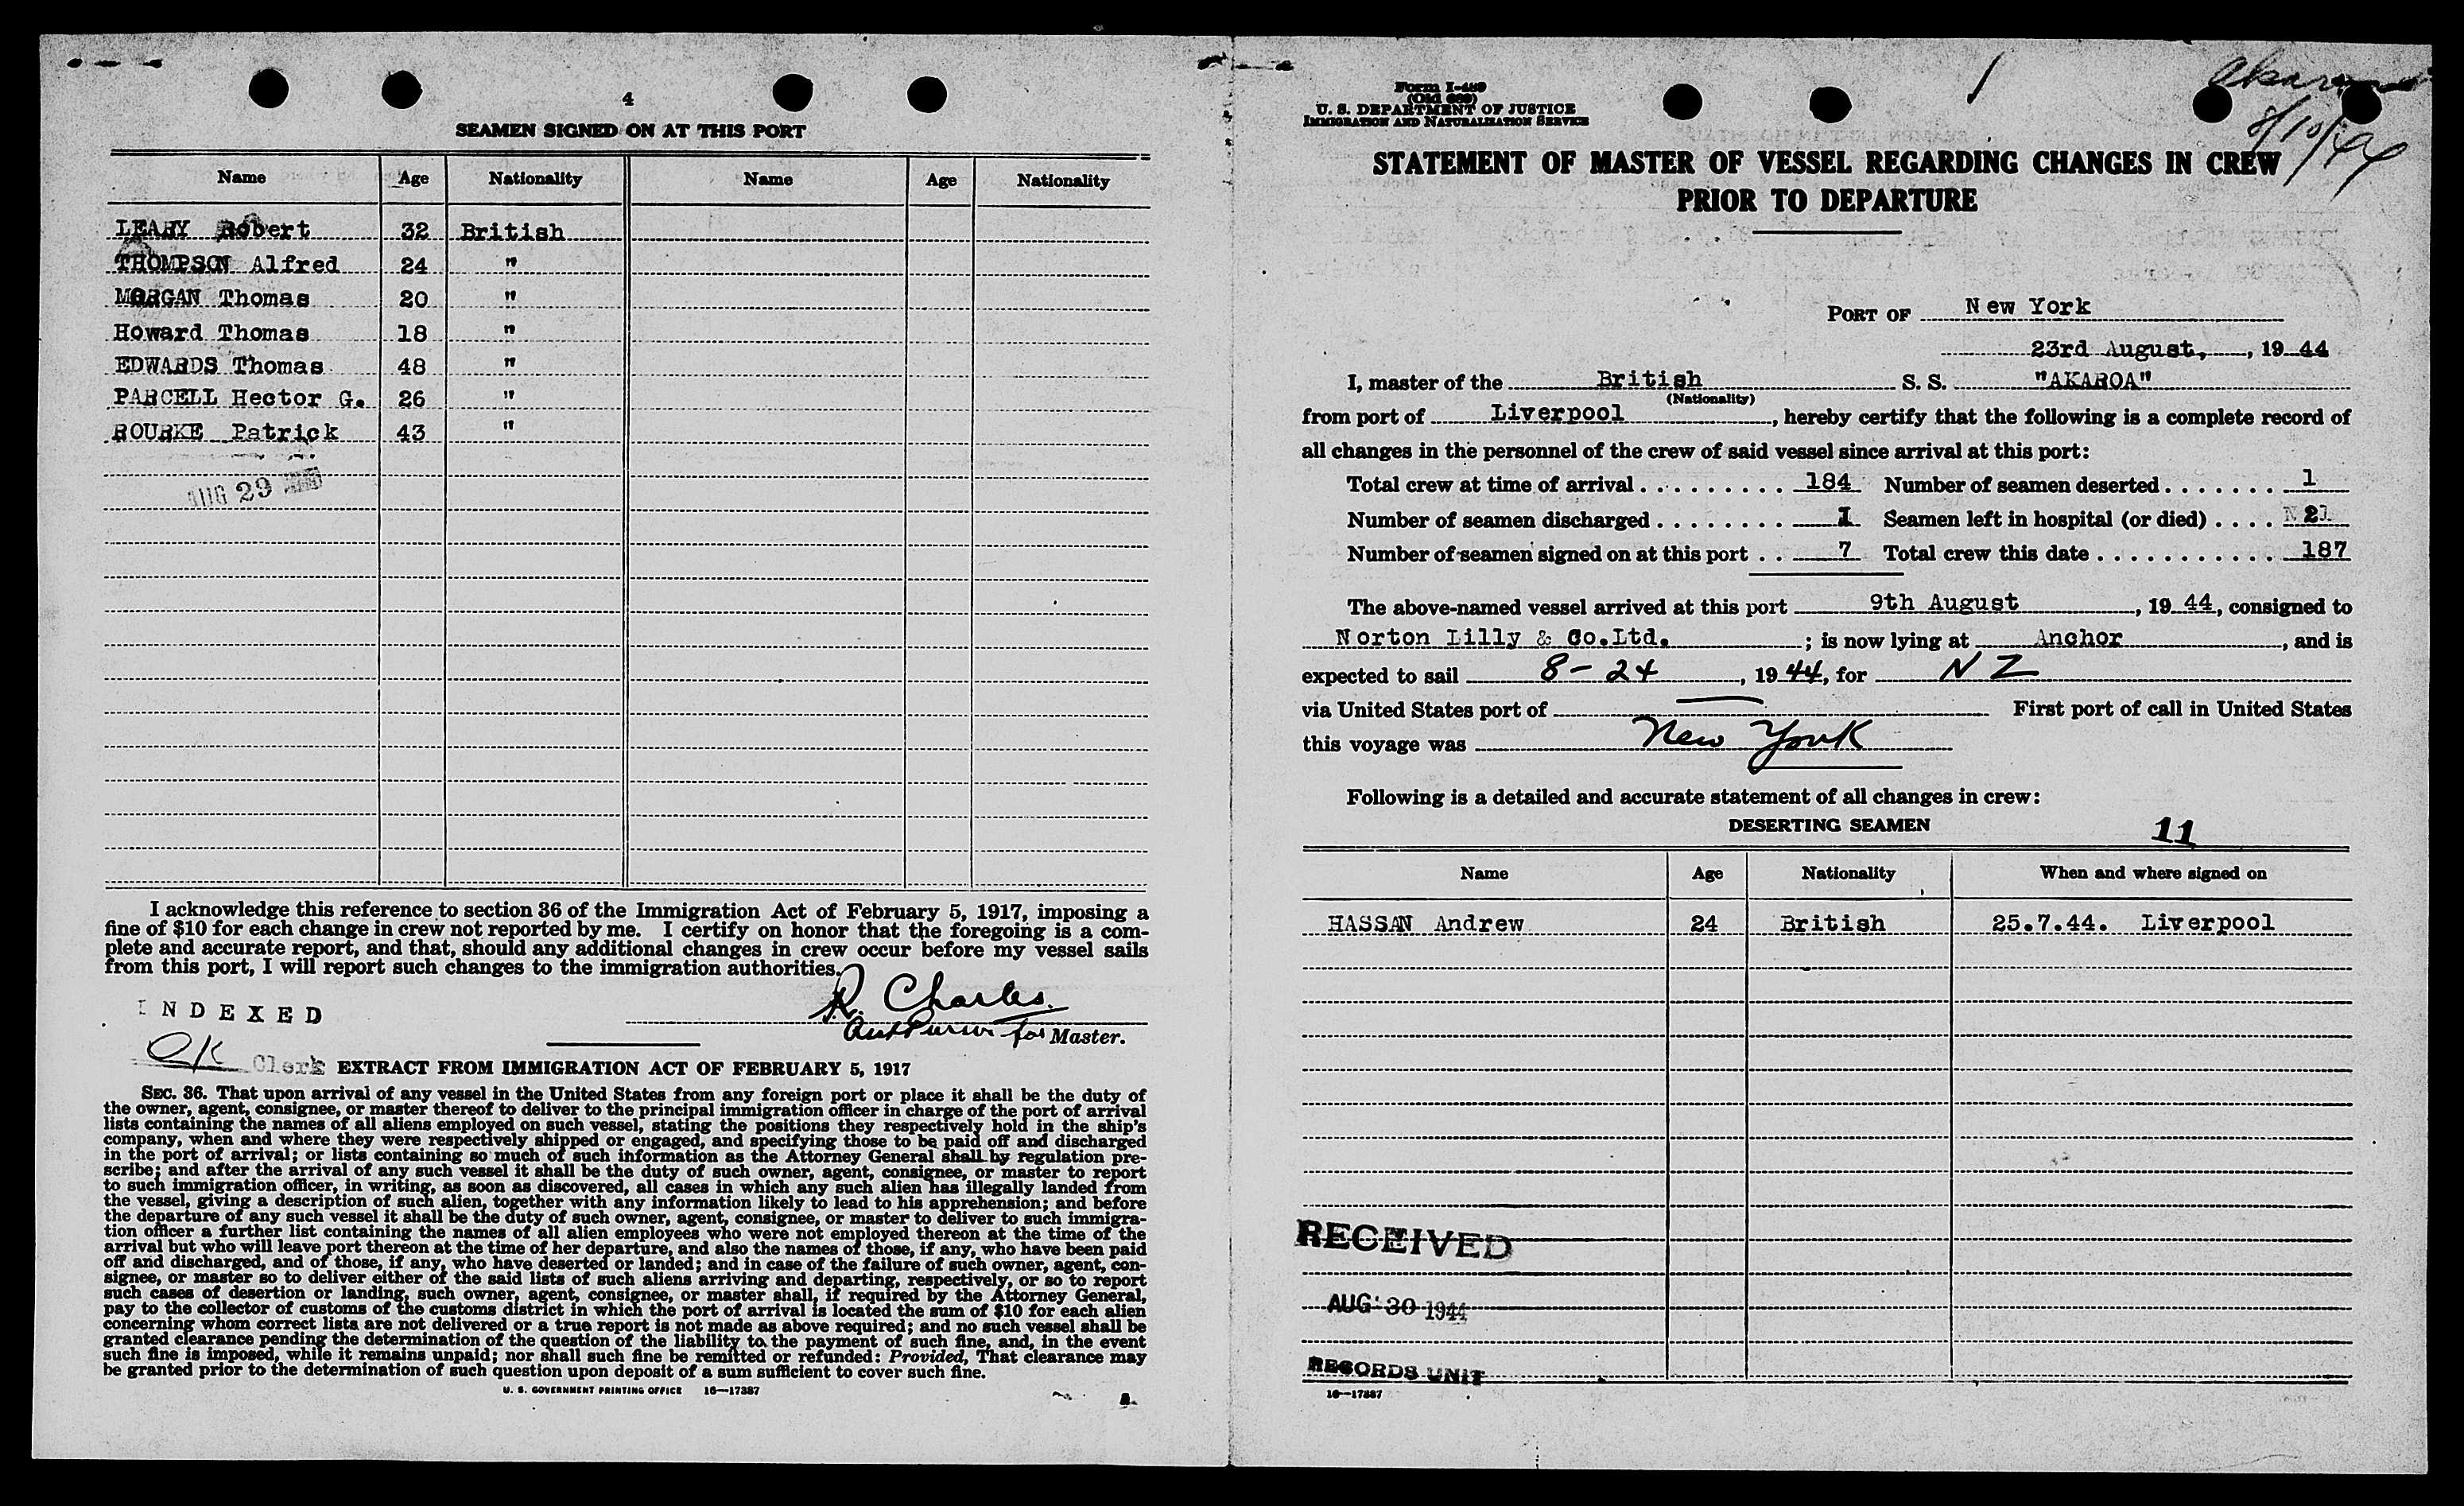 4
SEAMEN SIGNED ON AT THIS PORT
Name Age Nationality Name Age Nationality
LEARY Robert 32 British
THOMPSON Alfred 24 "
MORGAN Thomas 20 "
Howard Thomas 18 "
EDWARDS Thomas 48 "
PARCELL Hector G. 26 "
ROURKE Patrick 43 "
AUG 29
I acknowledge this reference to section 36 of the Immigration Act of February 5, 1917, imposing a
fine of $10 for each change in crew not reported by me. I certify on honor that the foregoing is a com-
plete and accurate report, and that, should any additional changes in crew occur before my vessel sails
from this port, I will report such changes to the immigration authorities.
R. Charles.
for Master.
INDEXED
Clerk
EXTRACT FROM IMMIGRATION ACT OF FEBRUARY 5, 1917
SEC. 36. That upon arrival of any vessel in the United States from any foreign port or place it shall be the duty of
the owner, agent, consignee, or master thereof to deliver to the principal immigration officer in charge of the port of arrival
lists containing the names of all aliens employed on such vessel, stating the positions they respectively hold in the ship's
company, when and where they were respectively shipped or engaged, and specifying those to be paid off and discharged
in the port of arrival; or lists containing so much of such information as the Attorney General shall by regulation pre-
scribe; and after the arrival of any such vessel it shall be the duty of such owner, agent, consignee, or master to report
to such immigration officer, in writing, as soon as discovered, all cases in which any such alien has illegally landed from
the vessel, giving a description of such alien, together with any information likely to lead to his apprehension; and before
the departure of any such vessel it shall be the duty of such owner, agent, consignee, or master to deliver to such immigra-
tion officer a further list containing the names of all alien employees who were not employed thereon at the time of the
arrival but who will leave port thereon at the time of her departure, and also the names of those, if any, who have been paid
off and discharged, and of those, if any, who have deserted or landed; and in case of the failure of such owner, agent, con-
signee, or master so to deliver either of the said lists of such aliens arriving and departing, respectively, or so to report
such cases of desertion or landing, such owner, agent, consignee, or master shall, if required by the Attorney General,
pay to the collector of customs of the customs district in which the port of arrival is located the sum of $10 for each alien
concerning whom correct lists are not delivered or a true report is not made as above required; and no such vessel shall be
granted clearance pending the determination of the question of the liability to the payment of such fine, and, in the event
such fine is imposed, while it remains unpaid; nor shall such fine be remitted or refunded: Provided, That clearance may
be granted prior to the determination of such question upon deposit of a sum sufficient to cover such fine.
U. S. GOVERNMENT PRINTING OFFICE 16—17387
Form I-489
(Old 689)
U. S. DEPARTMENT OF JUSTICE
IMMIGRATION AND NATURALIZATION SERVICE
Akaroa
8/10/44
STATEMENT OF MASTER OF VESSEL REGARDING CHANGES IN CREW
PRIOR TO DEPARTURE
PORT OF New York
23rd August, , 19 44
I, master of the British S. S. "AKAROA"
(Nationality)
from port of Liverpool , hereby certify that the following is a complete record of
all changes in the personnel of the crew of said vessel since arrival at this port:
Total crew at time of arrival . . . . . . . . . . 184 Number of seamen deserted . . . . . . . 1
Number of seamen discharged . . . . . . . . 1 Seamen left in hospital (or died) . . . . 2
Number of seamen signed on at this port . . 7 Total crew this date . . . . . . . . . . . . 187
The above-named vessel arrived at this port 9th August , 19 44, consigned to
Norton Lilly & Co.Ltd. ; is now lying at Anchor , and is
expected to sail 8-24 , 19 44, for N Z
via United States port of — First port of call in United States
this voyage was New York
Following is a detailed and accurate statement of all changes in crew:
DESERTING SEAMEN 11
Name Age Nationality When and where signed on
HASSAN Andrew 24 British 25.7.44. Liverpool
RECEIVED
AUG 30 1944
RECORDS UNIT
16—17387